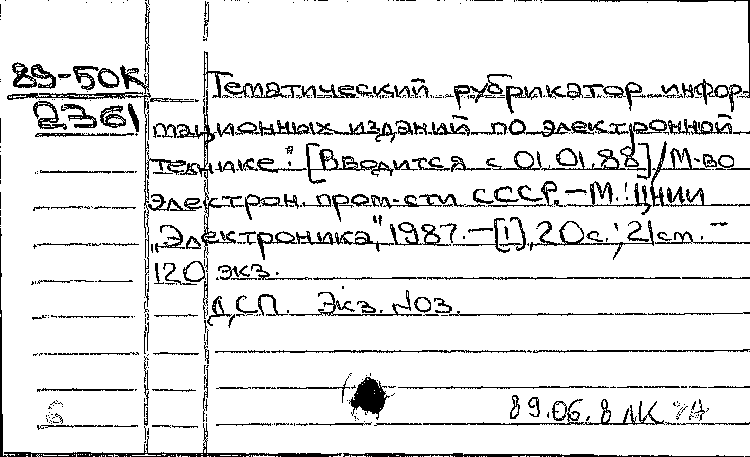 89-50К
2361
Тематический рубрикатор инфор-
мационных изданий по электронной
технике: [Вводится с 01.01.88]/М-во
электрон. пром-сти СССР.-М.: ЦНИИ
„Электроника", 1987.-[1], 20с.; 21см.-
120 экз.
ДСП. Экз. №03.
6
89.06.8 ЛК